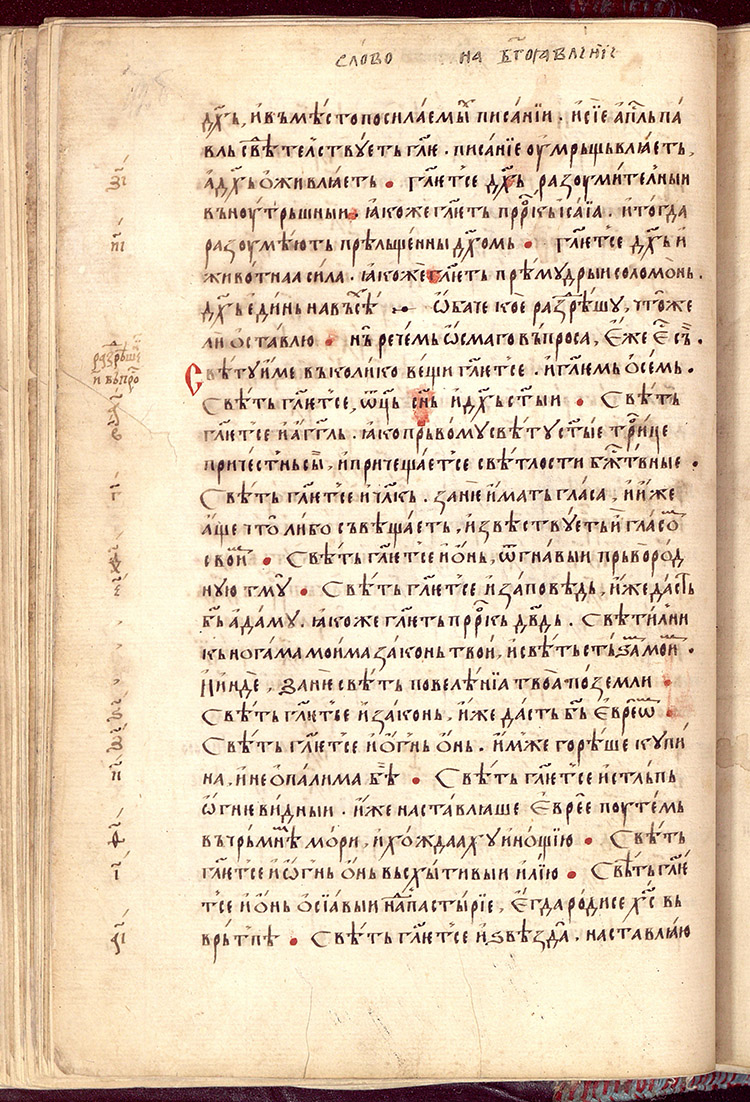 слово на бг҃оꙗвленїе
дх҃ь, и въмѣсто посилаемы́и писанїи · и сїе ап҃ль па
вль свѣтелствуеть гл҃ѥ · писанїе оумрьщьвлꙗеть,
а дх҃ь оживлꙗеть · гл҃ѥтсе дх҃ь разоумителныи
вьноутрьшныи · ꙗкоже гл҃ѥть прⷪ҇ркь исаїа · и тогда
разоумѣють прѣльщенны дх҃омь · гл҃ѥтсе дх҃ь и
животнаа сила · ꙗкоже гл҃ѥть прѣмудрыи соломѡнь ·
дх҃ь единь на вьсѣ · ѡбаче кое разрѣшу, что же
ли оставлю · нь речемь ѡсмаго вьпроса, еже есⷮь ·
разⷬ҇ѣше
и вьпрⷪ҇
Свѣту име вь колико вещи гл҃ѥтсе · и гл҃ѥмь осемь ·
Свѣть гл҃ѥтсе, ѡц҃ь сн҃ь и дх҃ь ст҃ыи · Свѣть
гл҃ѥтсе и агг҃ль · ꙗко прьвому свѣту ст҃ыѥ трⷪ҇ице
причестньсы, и причещаетсе свѣтлости бжⷭ҇твьные ·
Свѣть гл҃ѥтсе и чл҃кь · зане имать гласа, и иже
аще что либо сьвѣщаеть, извѣствуеть и гласоⷨ
своиⷨ · Свѣть гл҃ѥтсе и онь, ѿгнавыи прьвород
ную тму · Свѣть гл҃ѥтсе и заповѣдь, иже дасть
бь адаму · ꙗкоже гл҃ѥть прⷪ҇ркь дв҃дь · Свѣтилни
кь ногама моима законь твои, и свѣть стьзамь моиⷨ ·
И инде, зане свѣть повелѣнїа твоа по земли ·
Свѣть гл҃ѥтсе и законь, иже дасть бь евреѡⷨ ·
Свѣть гл҃ѥтсе и огнь онь · имже горѣше купи
на, и не опалима бѣ · Свѣть гл҃ѥтсе и стльпь
ѡгневидныи · иже наставлꙗше еврее поутемь
вь чрьмнѣⷨ мори, и хождаахуи нощїю · Свѣть
гл҃ѥтсе и ѡгнь онь вьсхытивыи илїю · Свѣть гл҃ѥ
тсе и онь осїавыи на пастырїе, егда родисе хс҃ вь
врьтпѣ · Свѣть гл҃ѥтсе и ѕвѣзда, наставлꙗю